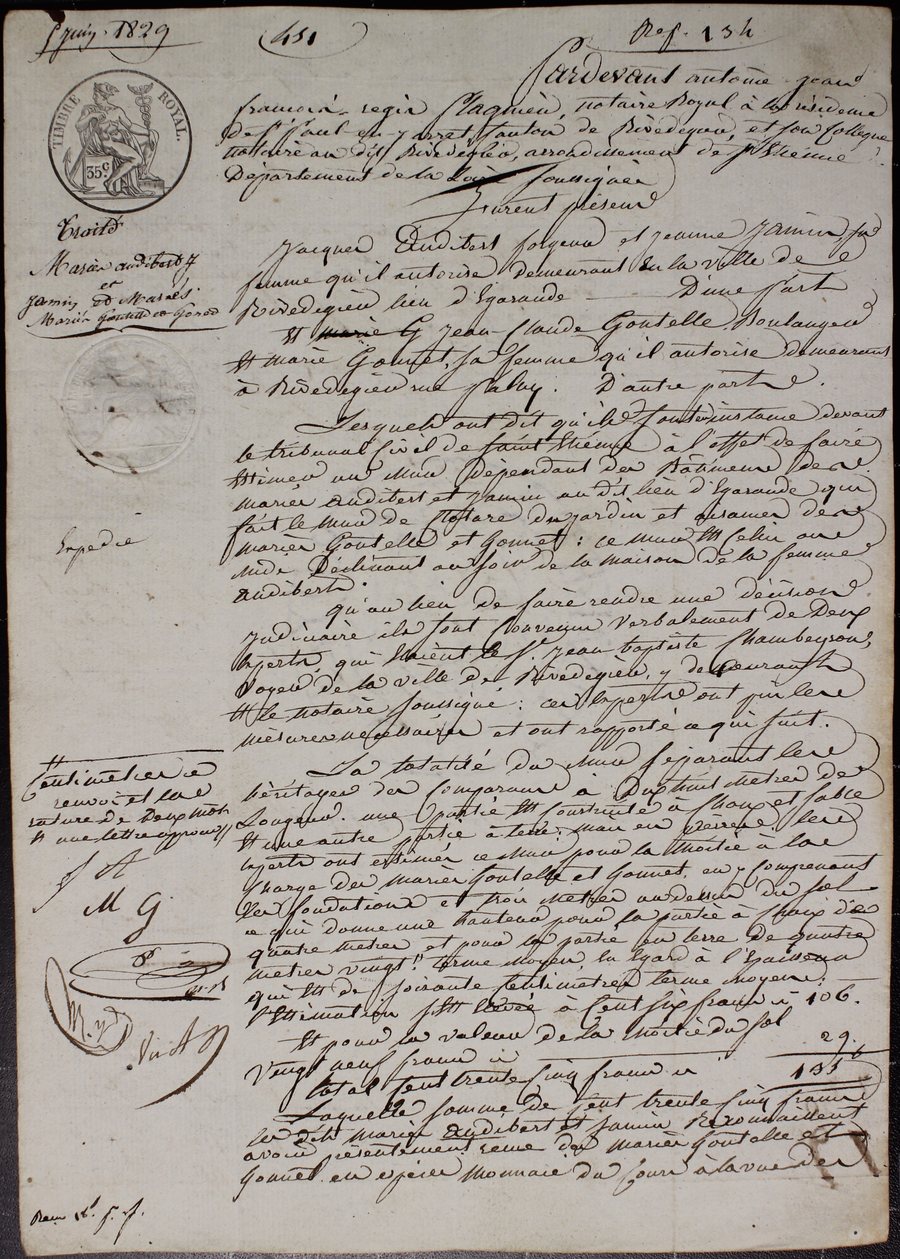 5 juin 1829
451
Rep. 134
TIMBRE ROYAL.
35 C
Traité
Mariés audibert &
Jamin et Mariés
Mariés Goutelle et Gonnet
Expedié
Pardevant antoine jean
françois regis notaire Royal à la résidence
de St Paul en jarret canton de Rivedegier, et son Collegue
notaire au dit Rivedegier, arrondissement de St Etienne
Département de la Loire Soussignés
Furent présens
Jacques Audibert forgeur et jeanne Jamin, sa
femme qu'il autorise demeurant en la ville de
Rivedegier lieu d'Egarande D'une Part
Et marie G jean-Claude Goutelle Boulanger
Et marie Gonnet, sa femme qu'il autorise demeurant
à Rivedegier rue D'autre part.
Lesquels ont dit qu'ils sont en instance devant
le tribunal Civil de Saint Etienne à l'effet de faire
Estimer un Mur dépendant des Bâtimens des
mariés audibert et Jamin au dit lieu d'Egarande qui
fait le mur de Cloture du jardin et aisances des
mariés Goutelle et Gonnet: ce mur Est Celui au
midi Déclinant au soir de la maison de la femme
audibert.
qu'au lieu de faire rendre une décision
Judiciaire ils sont Convenus verbalement de Deux
Experts, qui étaient le Sr. jean baptiste Chambeyron,
voyer de la ville de Rivedegier, y demeurant
Et le notaire soussigné: ces Experts ont pris les
mesures nécessaires et ont rapporté ce qui suit.
La totalité du Mur séparant les
héritages des Comparans à Dixhuit metres de
Longueur. une partie Est Construite à Chaux et Sable
Et une autre partie à terre. les
Experts ont estimé ce Mur pour la Moitié à la
Charge des Mariés Goutelle et Gonnet, en y Comprenant
les fondations et trois metres audessus du Sol
ce qui donne une hauteur pour la partie à Chaux de
quatre metres et pour la partie en terre de quatre
metres vingt terme moyen Eu Egard à l'Epaisseur
qui Est de Soixante Centimetres terme moyen.
l'Estimation s'Est élevée à Cent six francs ci 106.
Et pour la valeur de la Moitié du Sol
vingt neuf francs ci 29
total Cent trente Cinq francs ci 135
Laquelle Somme de Cent trente Cinq francs
les dits mariés audibert et jamin Reconnaissent
avoir présentement reçue des mariés Goutelle et
Gonnet en espèces Monnaie du Cours à la vue des
Centimetres
renvoi et la
rature de Deux mots
Et une lettre approuvés
J A
M G